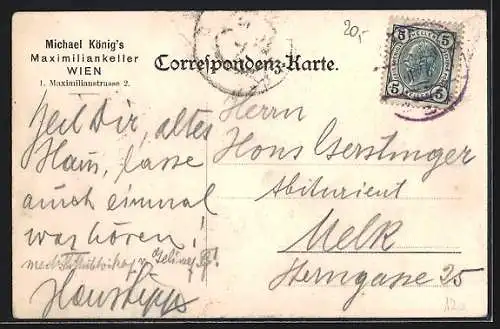 Michael König's
Maximiliankeller
WIEN
1. Maximilianstrasse 2.
20,-
Correspondenz-Karte.
5 5
5 5
Heil Dir, altes
Haus, lasse
auch einmal
was hören!
Herrn
Hans Gerstinger
Abiturient
Melk
Sterngasse 25